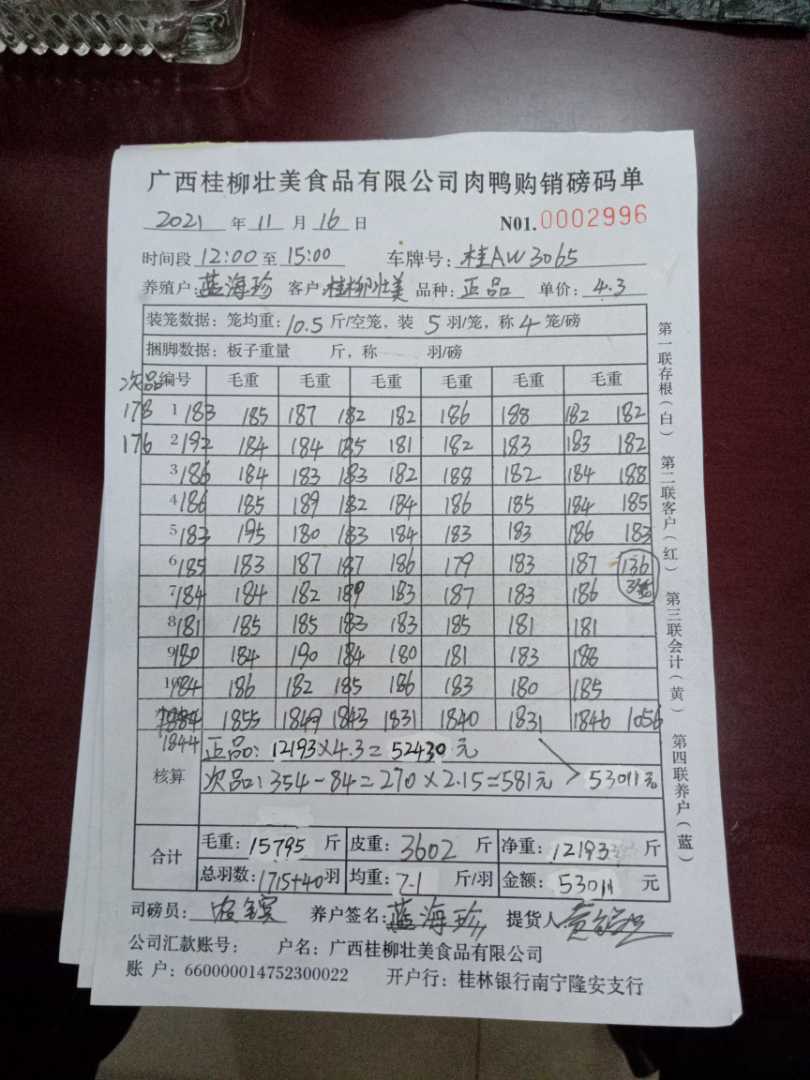 广西桂柳壮美食品有限公司肉鸭购销磅码单
2021 年 11 月 16 日 N01.0002996
时间段 12:00 至 15:00 车牌号: 桂AW3065
养殖户: 蓝海珍 客户: 桂柳壮美 品种: 正品 单价: 4.3
装笼数据: 笼均重: 10.5 斤/空笼, 装 5 羽/笼, 称 4 笼/磅
捆脚数据: 板子重量 斤, 称 羽/磅
次品 编号 毛重 毛重 毛重 毛重 毛重 毛重
178 1 183 185 187 182 182 186 188 182 182
176 2 192 184 184 185 181 182 183 183 182
3 186 184 183 183 182 188 182 184 188
4 186 185 189 182 184 186 185 184 185
5 183 195 180 183 184 183 183 186 183
6 185 183 187 187 186 179 183 187 136
7 184 184 182 189 183 187 183 186 3笼
8 181 185 185 183 183 185 181 181
9 180 184 190 184 180 181 183 188
10 184 186 182 185 186 183 180 185
1855 1849 1843 1831 1840 1831 1846 1056
1844
核算 正品: 12193×4.3=52430元
次品: 354-84=270×2.15=581元 53011元
合计 毛重: 15795 斤 皮重: 3602 斤 净重: 12193 斤
总羽数: 1715+40 羽 均重: 7.1 斤/羽 金额: 53011 元
司磅员: 养户签名: 蓝海珍 提货人
公司汇款账号: 户名: 广西桂柳壮美食品有限公司
账 户: 660000014752300022 开户行: 桂林银行南宁隆安支行
第一联存根(白) 第二联客户(红) 第三联会计(黄) 第四联养户(蓝)